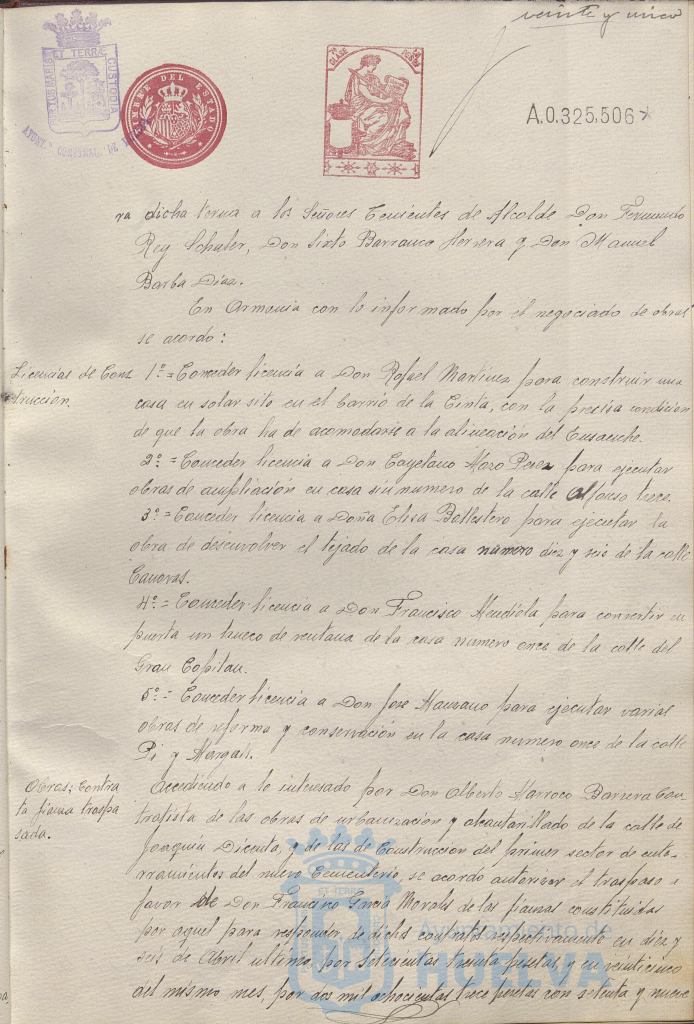 veinte y uno
PORTUS MARIS ET TERRÆ CUSTODIA
AYUNT.º CONST.NAL. DE
TIMBRE DEL ESTADO
CLASE
A.0.325,506
ra dicha terna a los Señores Tenientes de Alcalde Don Fernando
Rey Schuler, Don Sixto Barranco Herrera y Don Manuel
Barba Díaz.
En Armonia con lo informado por el negociado de obras
se acordo:
Licencias de Cons
truccion.
1º = Conceder licencia a Don Rafael Martinez para construir una
casa en solar sito en el barrio de la Cinta, con la precisa condición
de que la obra ha de acomodarse a la alineación del Ensanche.
2º = Conceder licencia a Don Cayetano Mozo Perez para ejecutar
obras de ampliación en casa sin numero de la calle Alfonso trece.
3º = Conceder licencia a Doña Elisa Ballestero para ejecutar la
obra de desenvolver el tejado de la casa numero diez y seis de la calle
Canovas.
4º = Conceder licencia a Don Francisco Mendiola para convertir en
puerta un hueco de ventana de la casa numero once de la calle del
Gran Capitan.
5º = Conceder licencia a Don Jose Manzano para ejecutar varias
obras de reforma y conservación en la casa numero once de la calle
Pi y Margall.
Obras; Contra
ta fianza traspa
sada.
Accediendo a lo interesado por Don Alberto Marroco Barrera Con
tratista de las obras de urbanización y alcantarillado de la calle de
Joaquín Dicenta, y de las de Construccion del primer sector de ente-
rramientos del nuevo Cementerio, se acordo autorizar el traspaso a
favor de Don Francisco Garcia Morales de las fianzas constituidas
por aquel para responder de dichos contratos respectivamente en diez y
seis de Abril ultimo por setecientas treinta pesetas, y en veinticinco
del mismo mes, por dos mil achocientas trece pesetas con setenta y nueve
Ayuntamiento de
HUELVA